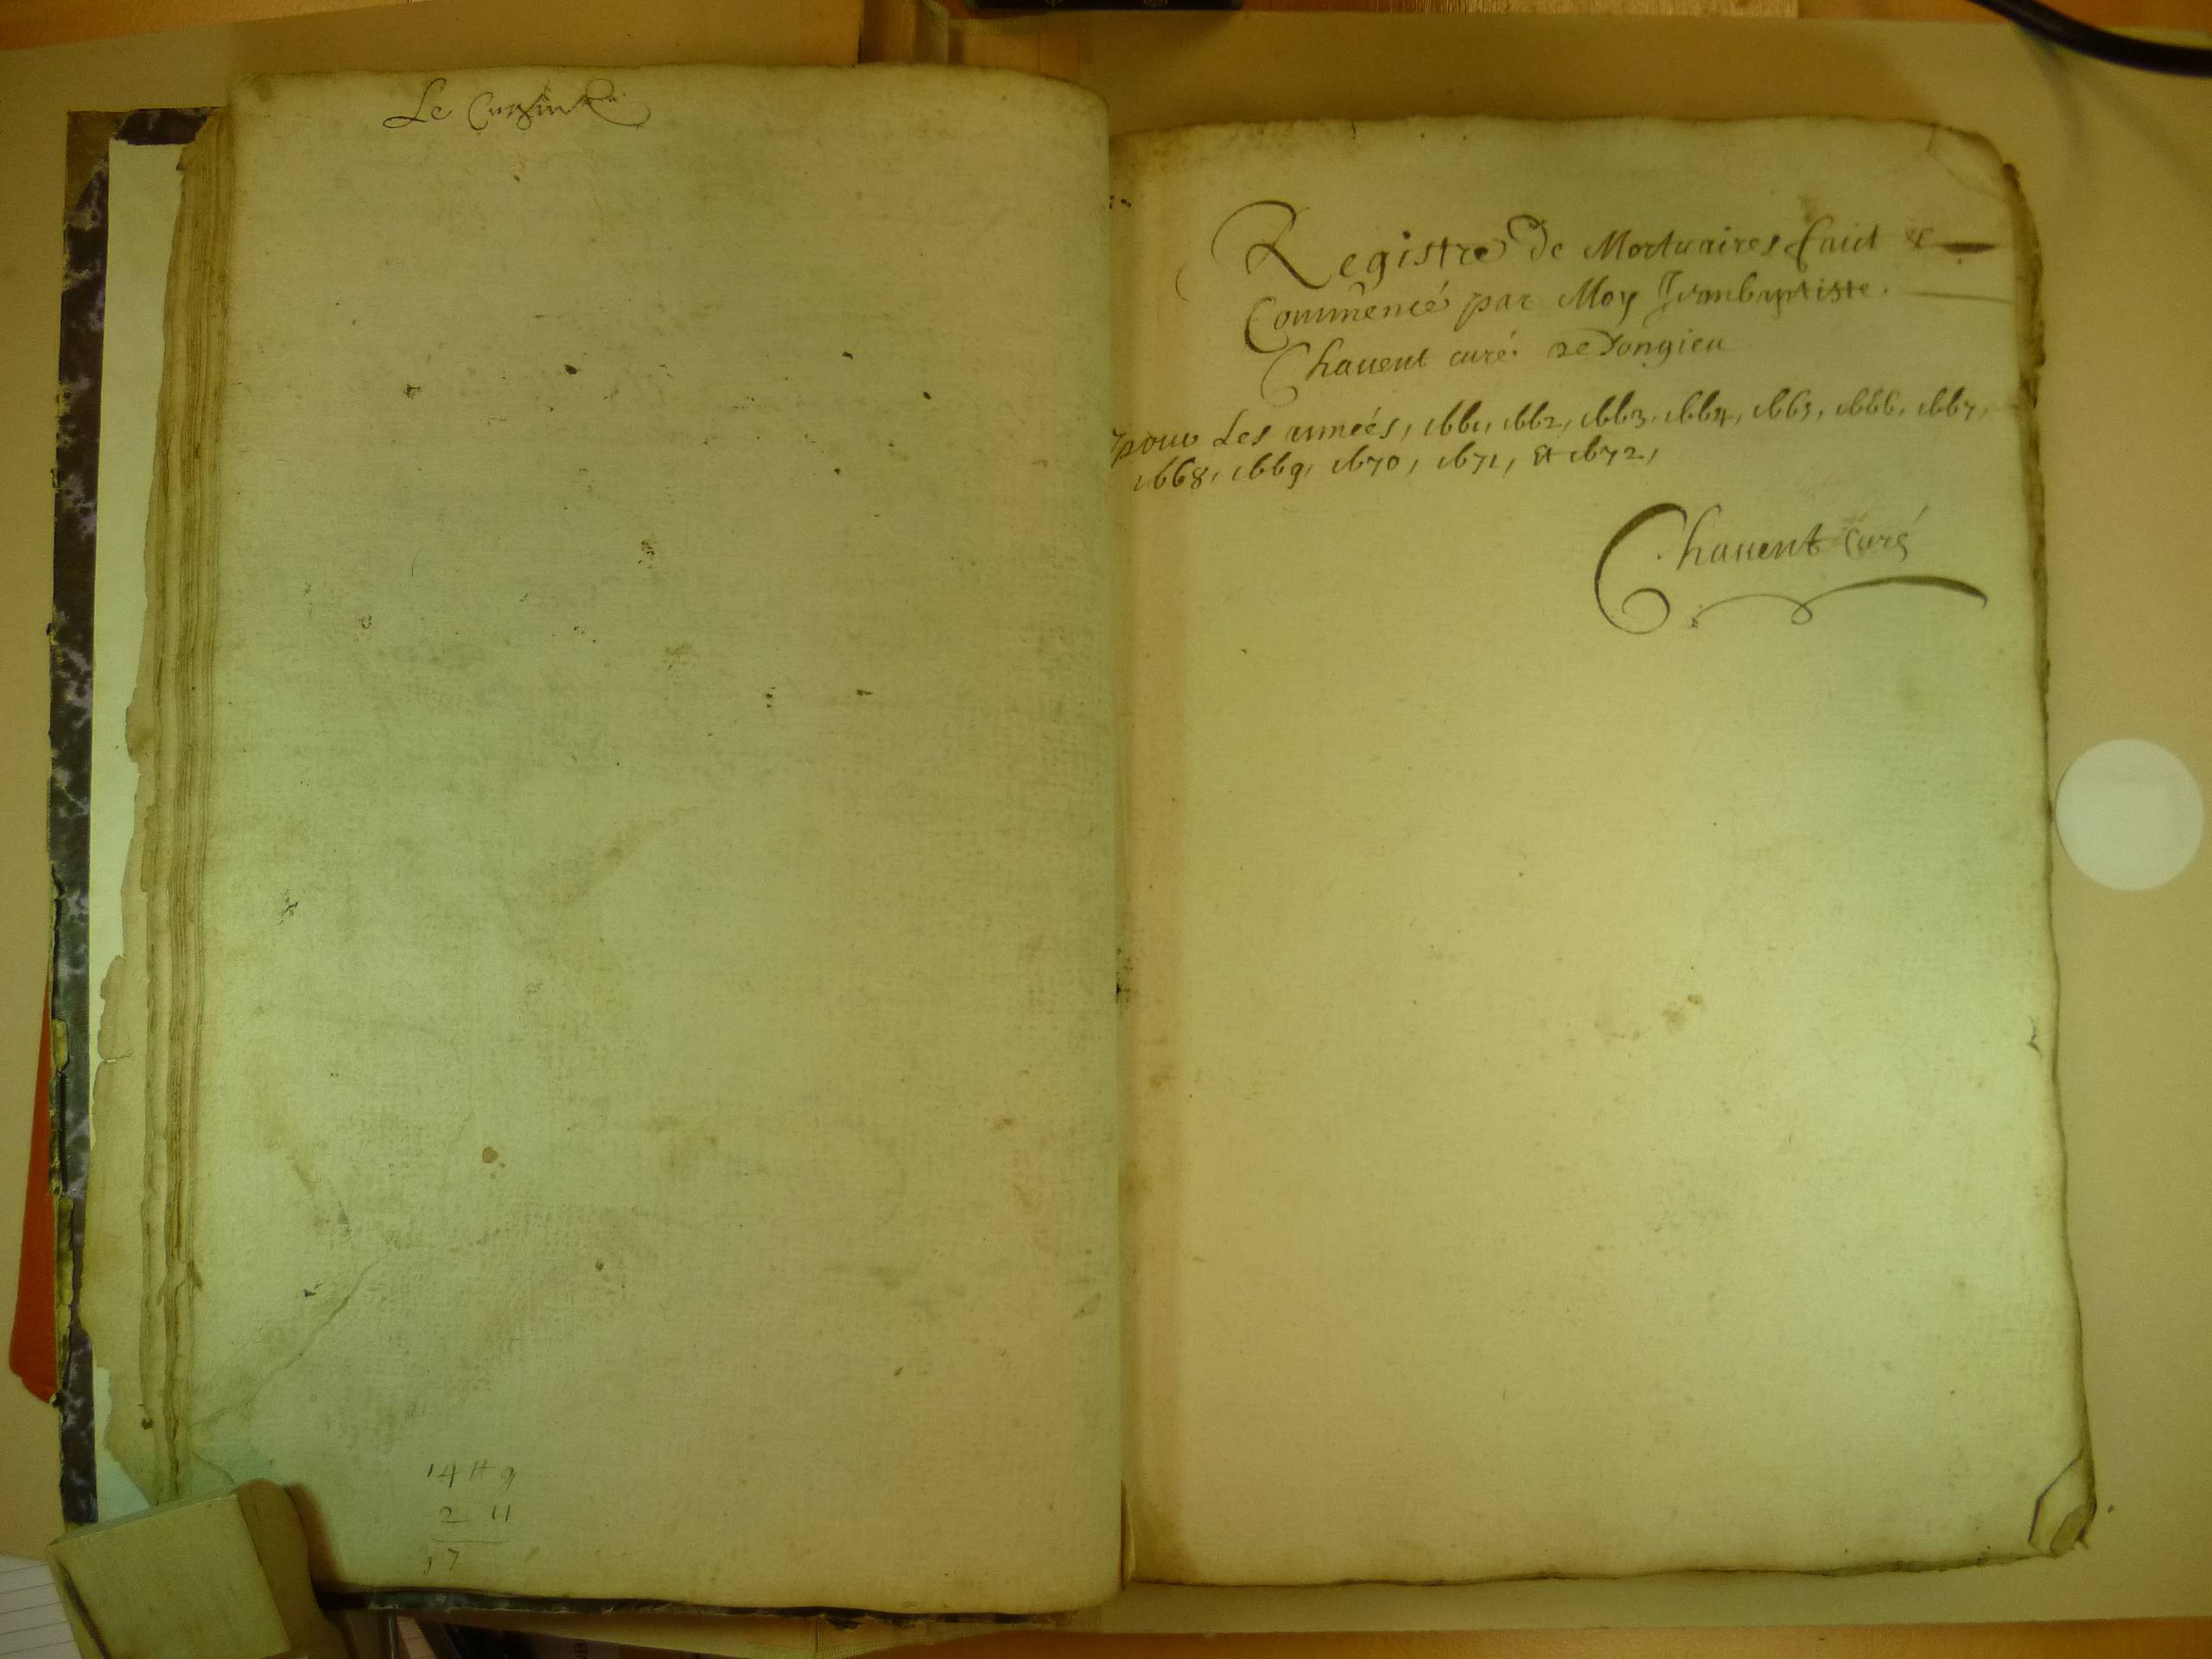 Le
14 tt 9
2 11
17
Registre de Mortuaires faict &
Commencé par Moy Jeanbaptiste
Chauent curé de Dongieu
pour Les années, 1661, 1662, 1663, 1664, 1665, 1666, 1667,
1668, 1669, 1670, 1671, Et 1672,
Chauent curé